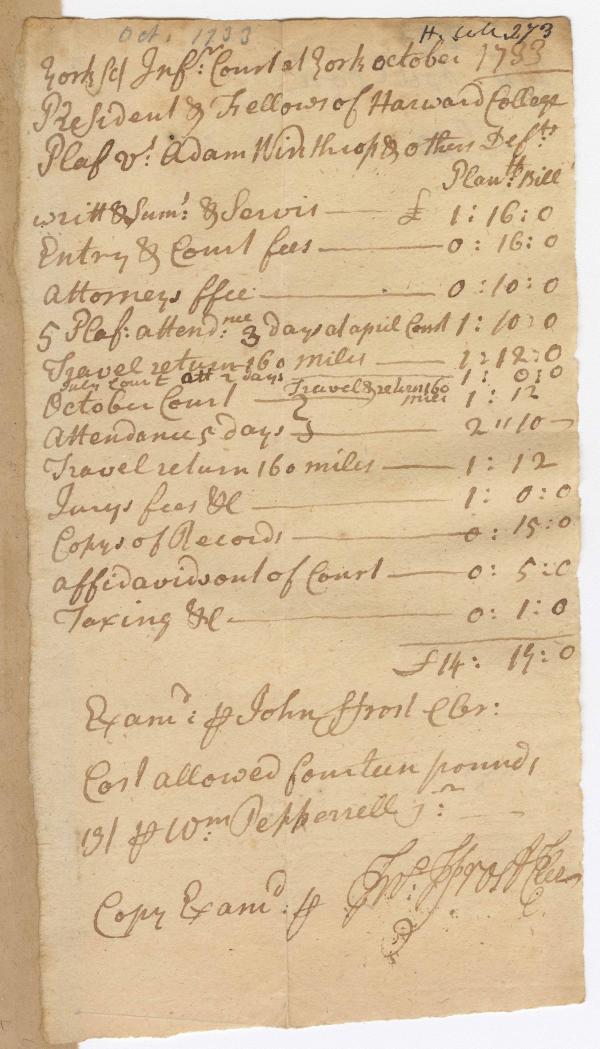 Oct. 1733
York ss/ Infr: Court at York october 1733
President & Fellows of Harward College
Plaf vs: Adam Winthrop & others Defts
Plantfs Bill
writt & Sum: & Servis — £ 1: 16: 0
Entry & Court fees — 0: 16: 0
Attorneys ffee — 0: 10: 0
5 Plaf: attendnce 3 days at april Court 1: 10: 0
Travel return 160 miles — 1: 12: 0
July Court att 2 days — 1: 0: 0
October Court — Travel & return 160 miles 1: 12
Attendance 5 days — 2 " 10 —
Travel return 160 miles — 1: 12
Jurys fees &c — 1: 0: 0
Copys of Records — 0: 15: 0
affidavids out of Court — 0: 5: 0
Taxing &c — 0: 1: 0
£14: 19: 0
Examd: p John Ffrost Cler:
Cost allowed fourteen pounds
19/ p Wm Pepperrell jr:
Copy Examd: p Jno: Ffrost Cler